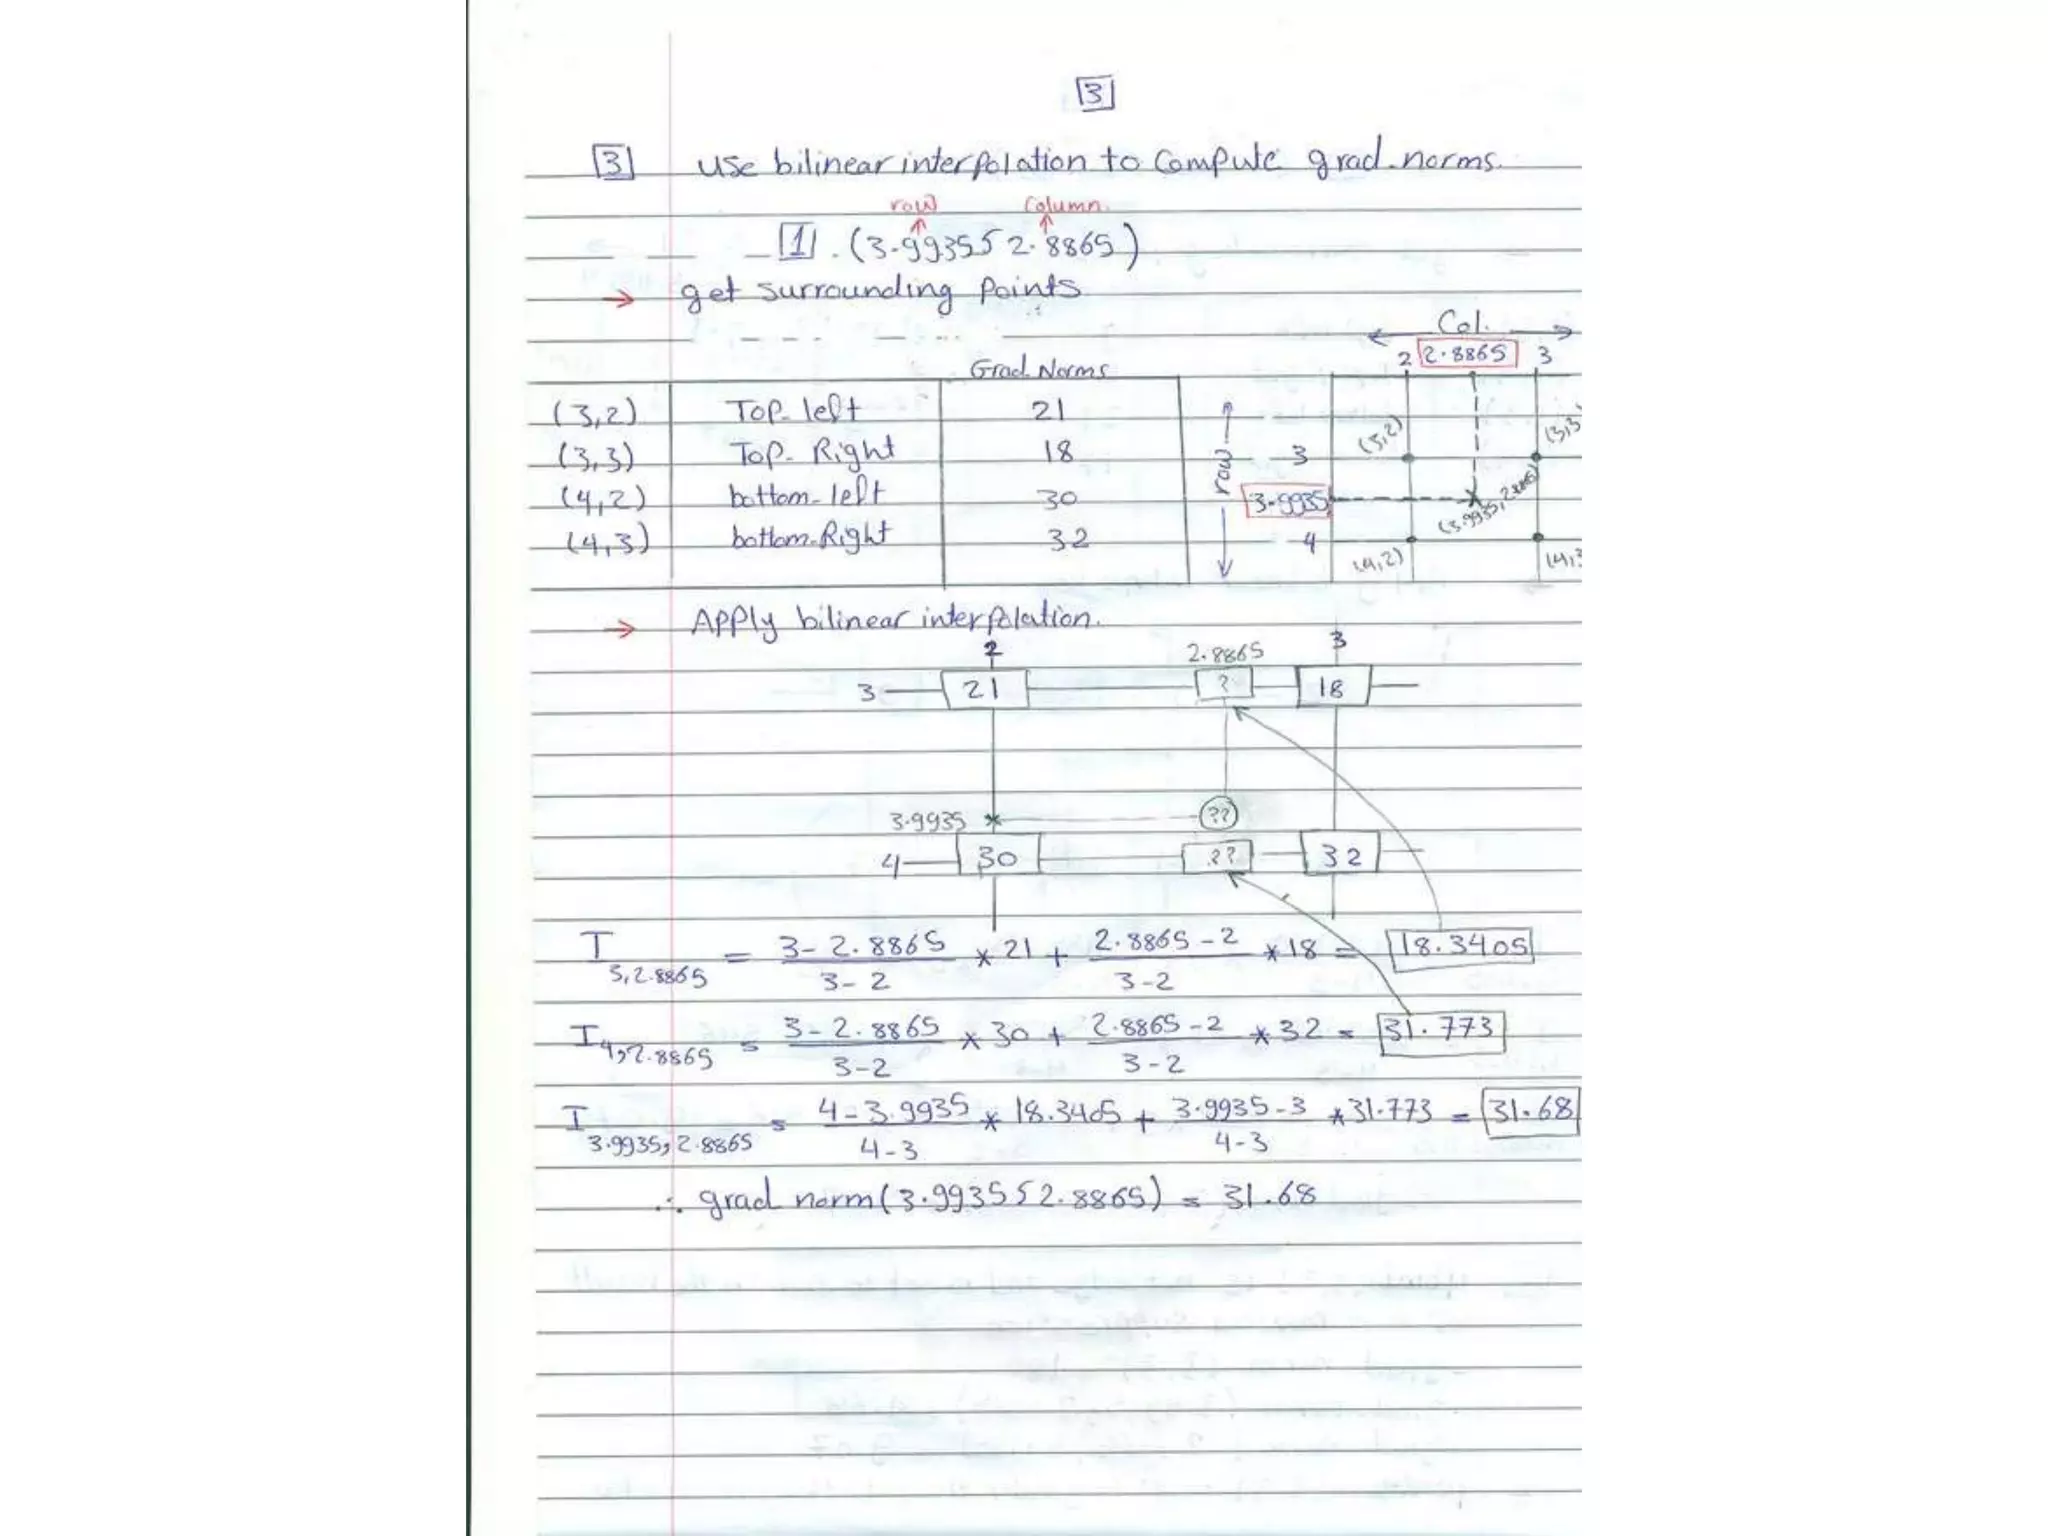 3
3 use bilinear interpolation to compute grad. norms.
row column.
1. (3.9935 , 2.8865)
→ get surrounding points
Col.
2 2.8865 3
Grad. Norms
(3,2) Top-left 21
(3,3) Top-Right 18
(4,2) bottom-left 30
(4,3) bottom-Right 32
row
3
3.9935
4
(3,2)
(3,3
(3.9935, 2.8865)
(4,2)
(4,3
→ Apply bilinear interpolation.
2 2.8865 3
3 21 ? 18
3.9935 ??
4 30 ?? 32
I 3,2.8865 = 3-2.8865 / 3-2 * 21 + 2.8865-2 / 3-2 * 18 = 18.3405
I 4,2.8865 = 3-2.8865 / 3-2 * 30 + 2.8865-2 / 3-2 * 32 = 31.773
I 3.9935,2.8865 = 4-3.9935 / 4-3 * 18.3405 + 3.9935-3 / 4-3 * 31.773 = 31.68
∴ grad norm(3.9935 , 2.8865) = 31.68